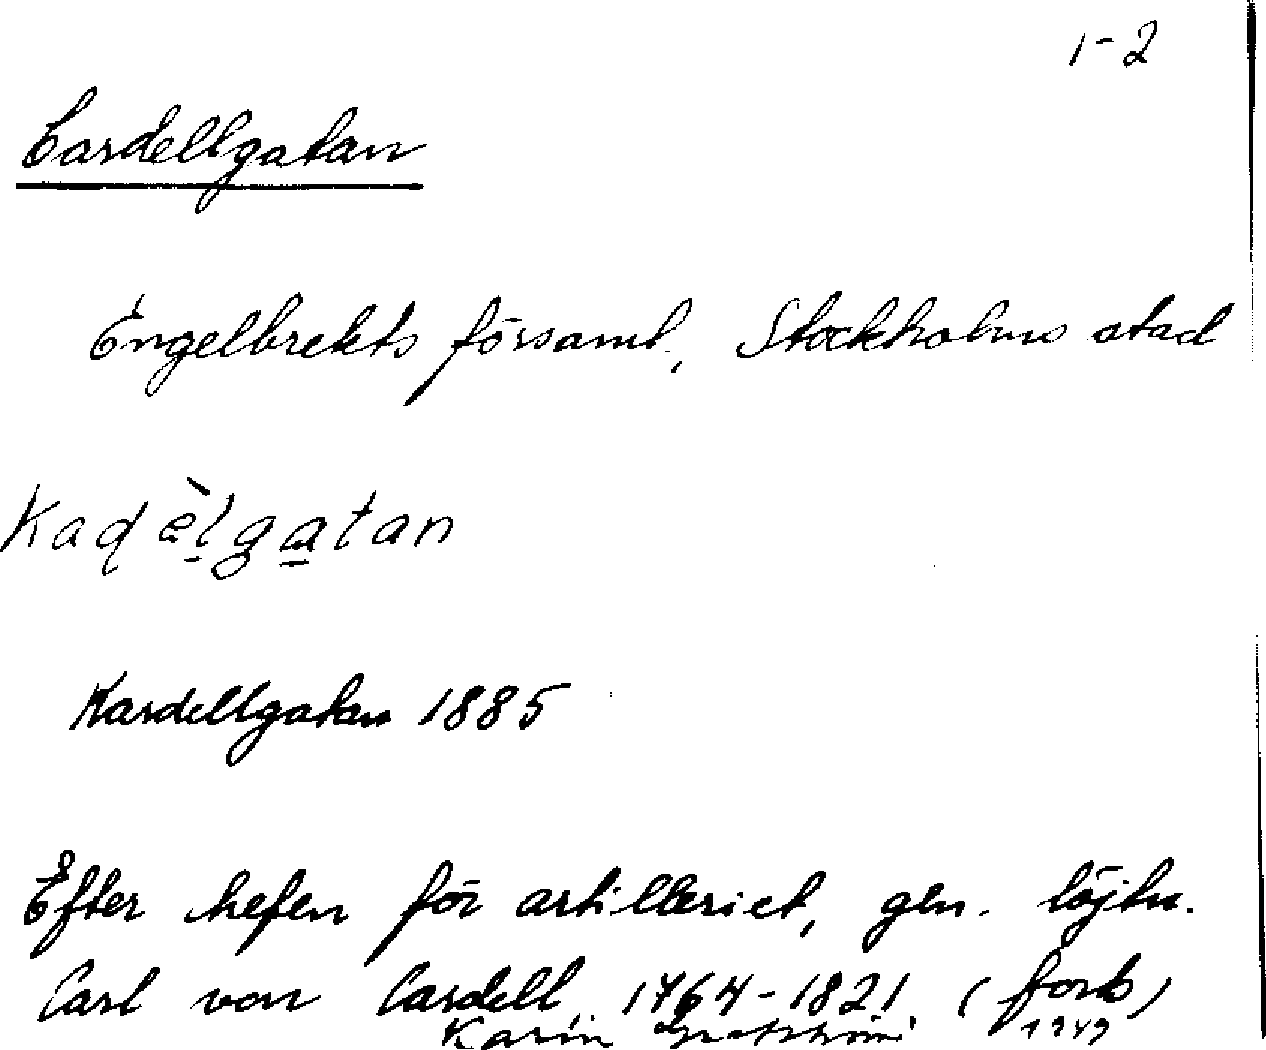 1-2
Cardellgatan
Engelbrekts församl., Stockholms stad
Kadèlgatan
Kardellgatan 1885
Efter chefen för artilleriet, gen. löjtn.
Carl von Cardell, 1764-1821. (forts)
Karin